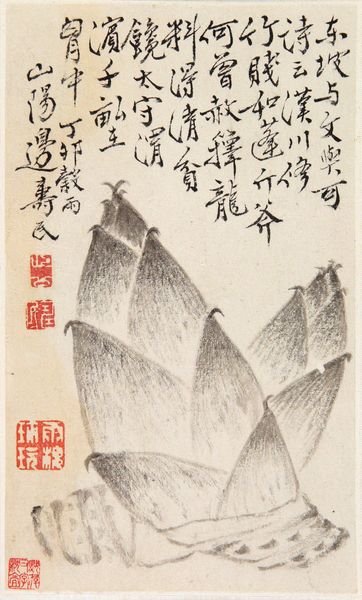 東坡与文與可
詩云漢川修
竹賤如蓬斤斧
何曾赦籜龍
料得清貧
饞太守渭
濱千畝在
胷中 丁卯穀雨
山陽邊壽民